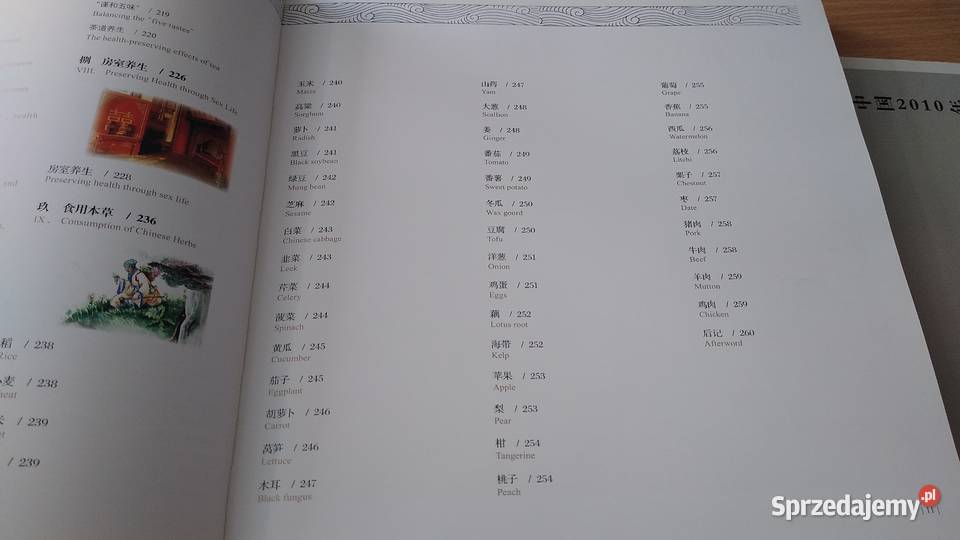 “谨和五味” / 219
Balancing the "five tastes"
茶道养生 / 220
The health-preserving effects of tea
捌 房室养生 / 226
VIII. Preserving Health through Sex Life
health
房室养生 / 228
Preserving health through sex life
and
玖 食用本草 / 236
IX. Consumption of Chinese Herbs
稻 / 238
Rice
麦 / 238
/ 239
/ 239
玉米 / 240
Maize
高粱 / 240
Sorghum
萝卜 / 241
Radish
黑豆 / 241
Black soybean
绿豆 / 242
Mung bean
芝麻 / 242
Sesame
白菜 / 243
Chinese cabbage
韭菜 / 243
Leek
芹菜 / 244
Celery
菠菜 / 244
Spinach
黄瓜 / 245
Cucumber
茄子 / 245
Eggplant
胡萝卜 / 246
Carrot
莴笋 / 246
Lettuce
木耳 / 247
Black fungus
山药 / 247
Yam
大葱 / 248
Scallion
姜 / 248
Ginger
番茄 / 249
Tomato
番薯 / 249
Sweet potato
冬瓜 / 250
Wax gourd
豆腐 / 250
Tofu
洋葱 / 251
Onion
鸡蛋 / 251
Eggs
藕 / 252
Lotus root
海带 / 252
Kelp
苹果 / 253
Apple
梨 / 253
Pear
柑 / 254
Tangerine
桃子 / 254
Peach
葡萄 / 255
Grape
香蕉 / 255
Banana
西瓜 / 256
Watermelon
荔枝 / 256
Litchi
栗子 / 257
Chestnut
枣 / 257
Date
猪肉 / 258
Pork
牛肉 / 258
Beef
羊肉 / 259
Mutton
鸡肉 / 259
Chicken
后记 / 260
Afterword
中国2010年
Sprzedajemy.pl